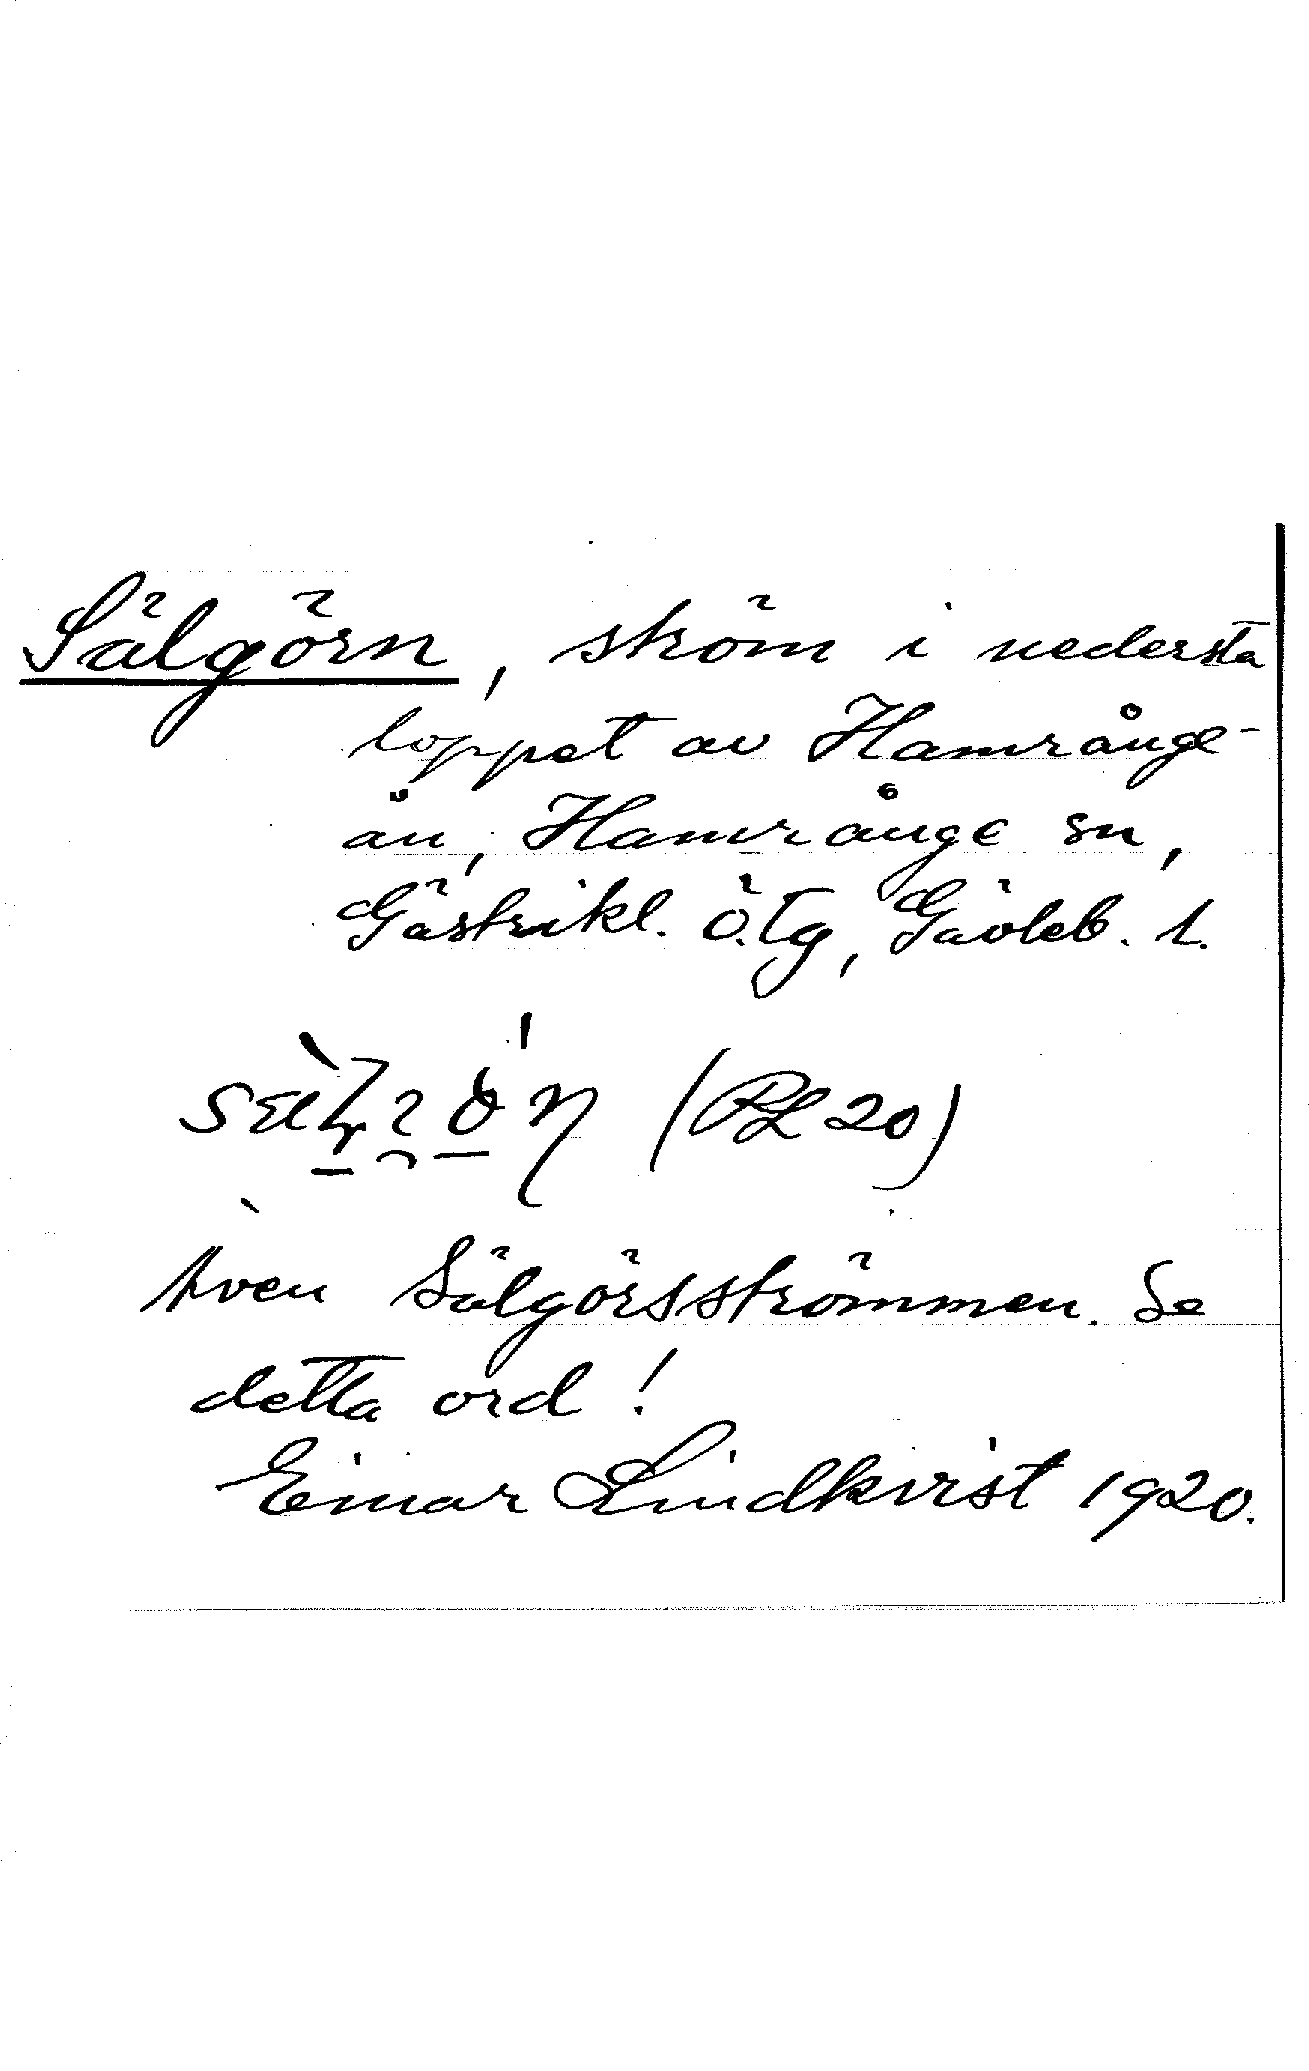 Sälgörn, ström i nedersta
loppet av Hamrånge-
ån, Hamrånge sn,
Gästrikl. ö. tg, Gävleb. l.
(RL 20)
Även Sälgörsströmmen. Se
detta ord!
Einar Lindkvist 1920.